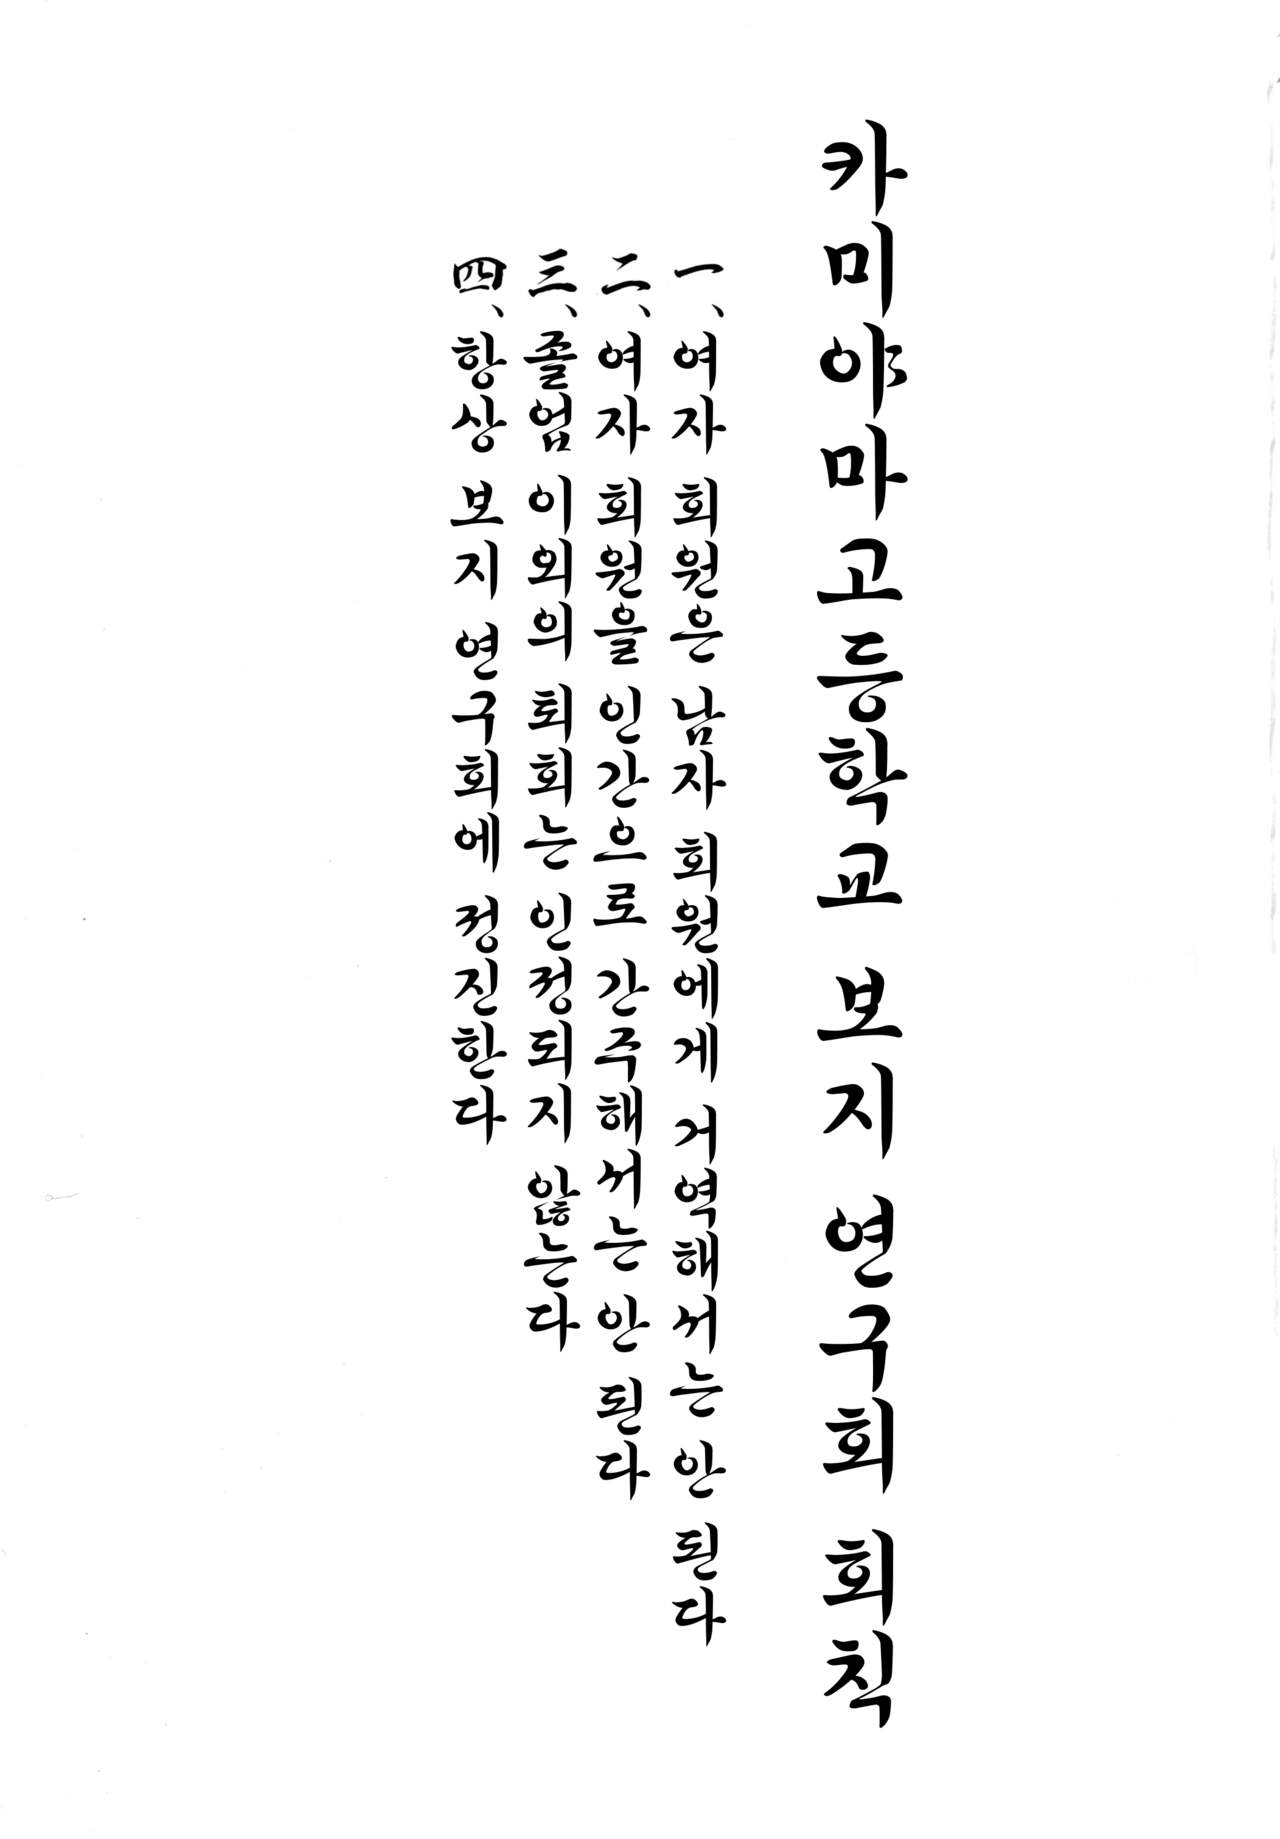 카미야마고등학교 보지 연구회 회칙
一、여자 회원은 남자 회원에게 거역해서는 안 된다
二、여자 회원을 인간으로 간주해서는 안 된다
三、졸업 이외의 퇴회는 인정되지 않는다
四、항상 보지 연구회에 정진한다